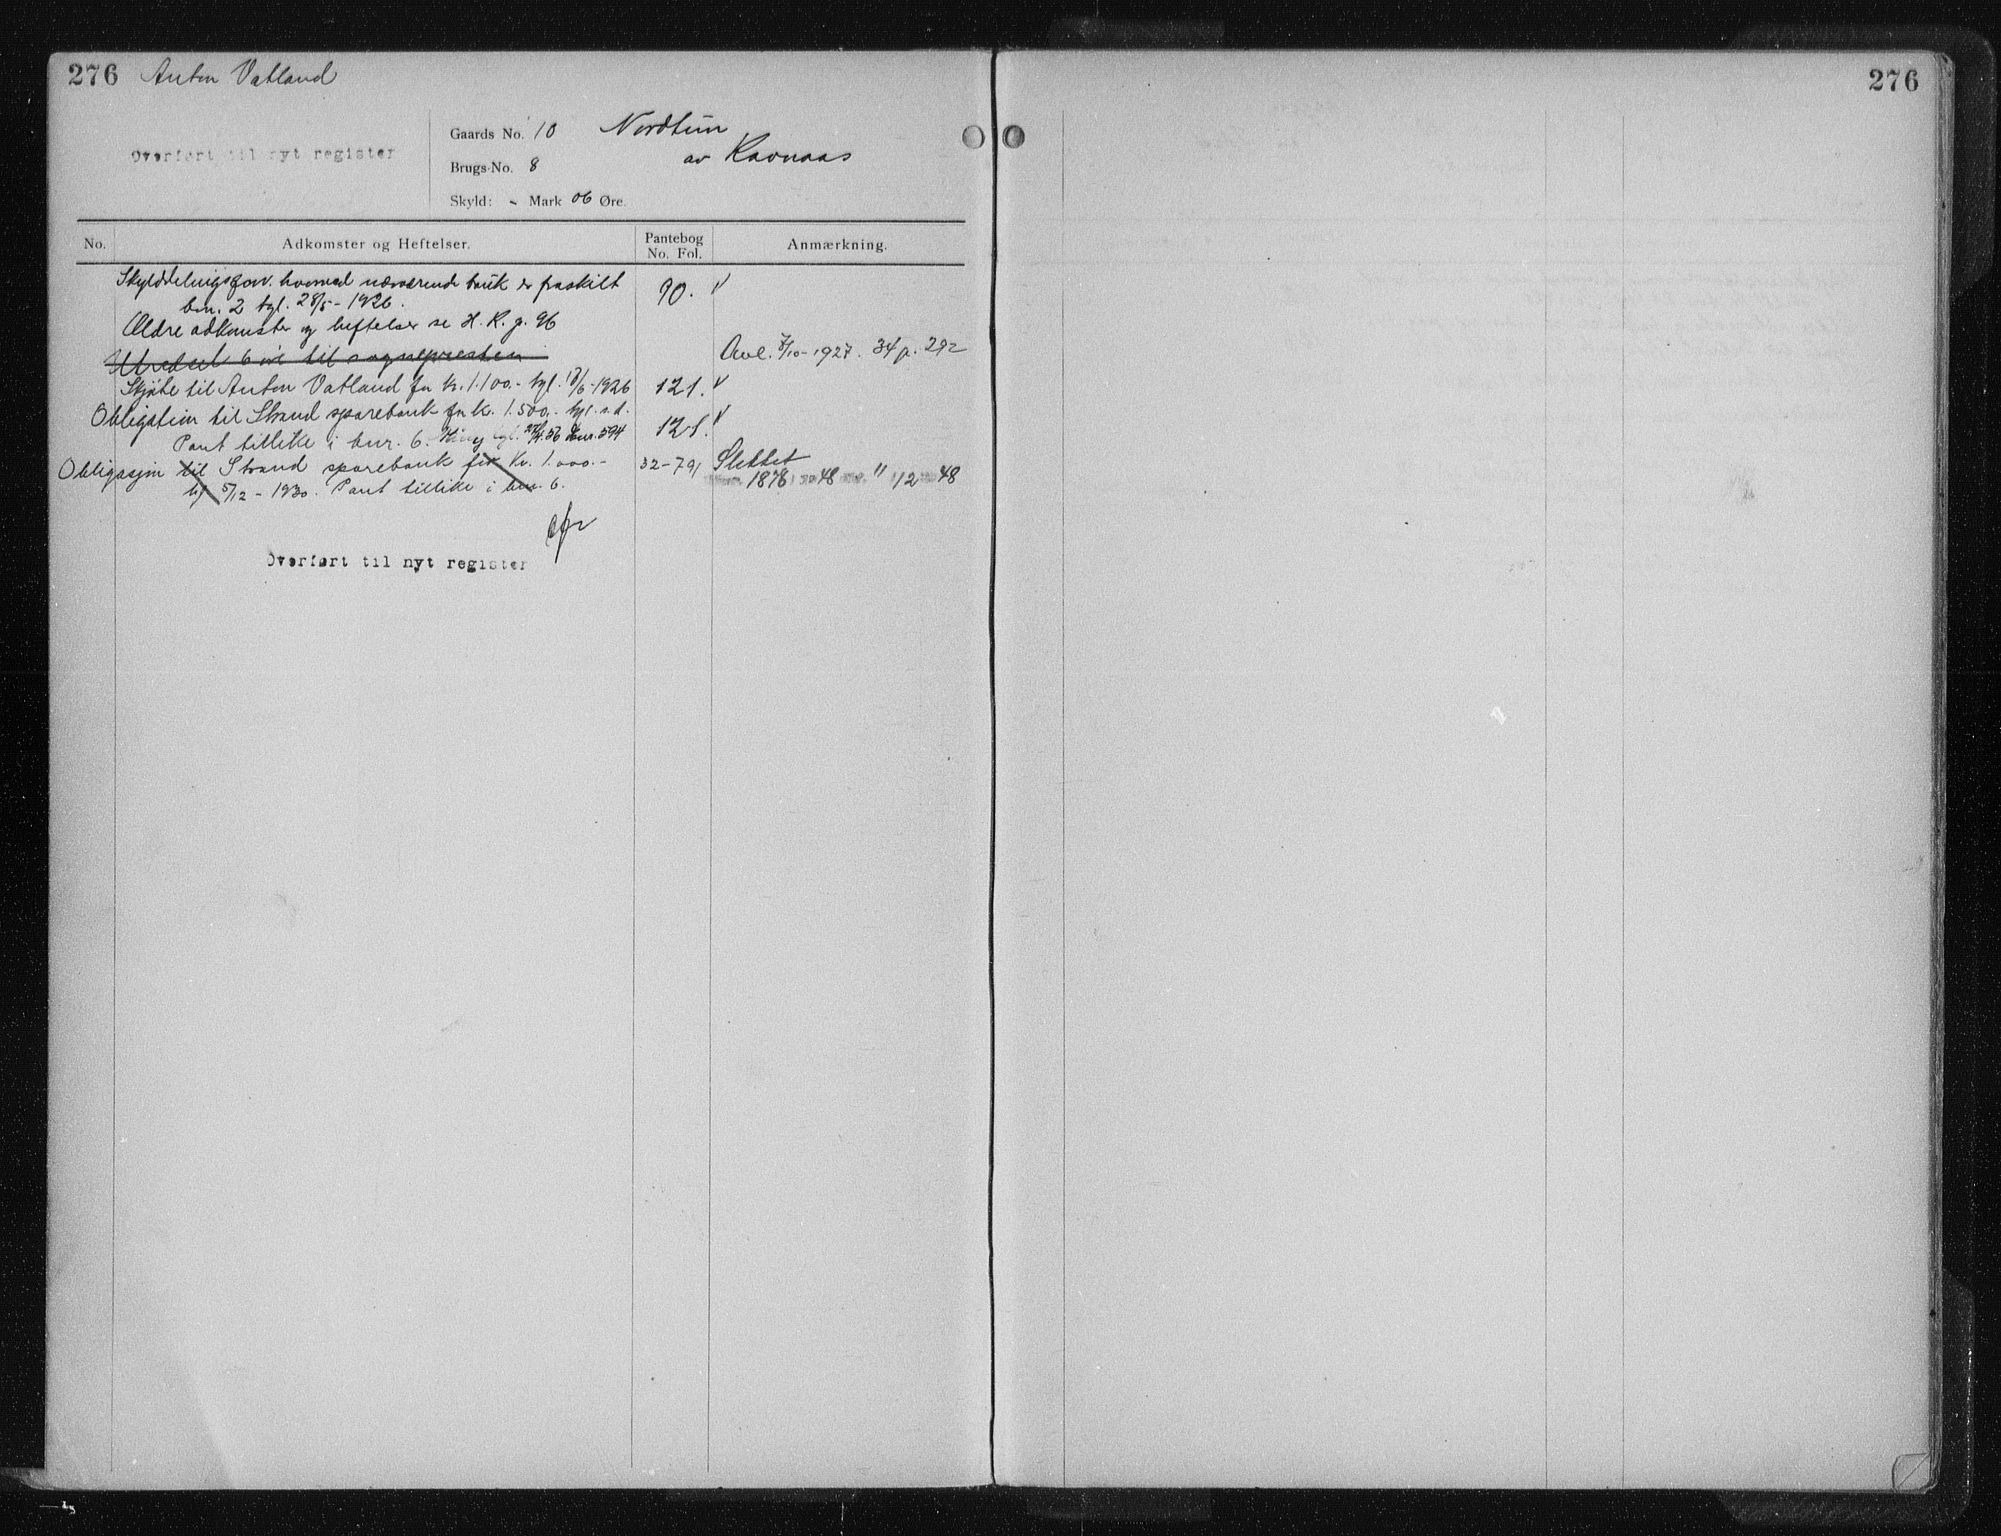 276 Anton Vatland
Gaards No. 10 Nordtun
Overført til nyt register
av Ravnaas
Brugs-No. 8
Skyld: - Mark 06 Øre.
No. Adkomster og Heftelser. Pantebog No. Fol. Anmærkning.
Skylddelingsforr. hvorved nærværende bruk er fraskilt 90. V
bnr. 2 tgl. 28/5 - 1926.
Ældre adkomster og heftelser se H. R. p. 96
Utredsel 6 øre til sognepresten Avl. 7/10 - 1927. 34 p. 292
Skjøte til Anton Vatland for kr. 1.100.- tgl. 18/6 - 1926 121. V
Obligation til Strand sparebank for kr. 1.500.- tgl. s.d. 121. V
Pant tillike i bnr. 6. tgl. 56 594
Obligasjon til Strand sparebank for kr. 1.000.- 32-791 Slettet
tgl 5/12 - 1930. Pant tillike i bnr. 6. 1878 48 " 12 48
Overført til nyt register
276